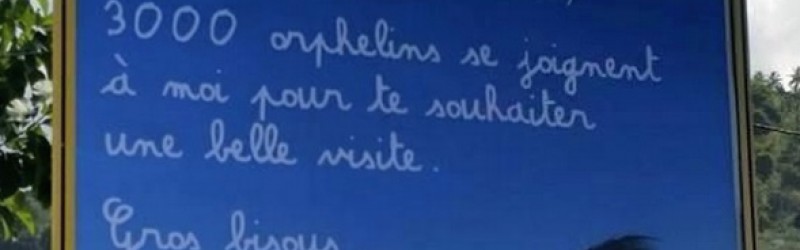 3000 orphelins se joignent
à moi pour te souhaiter
une belle visite.
Gros bisous